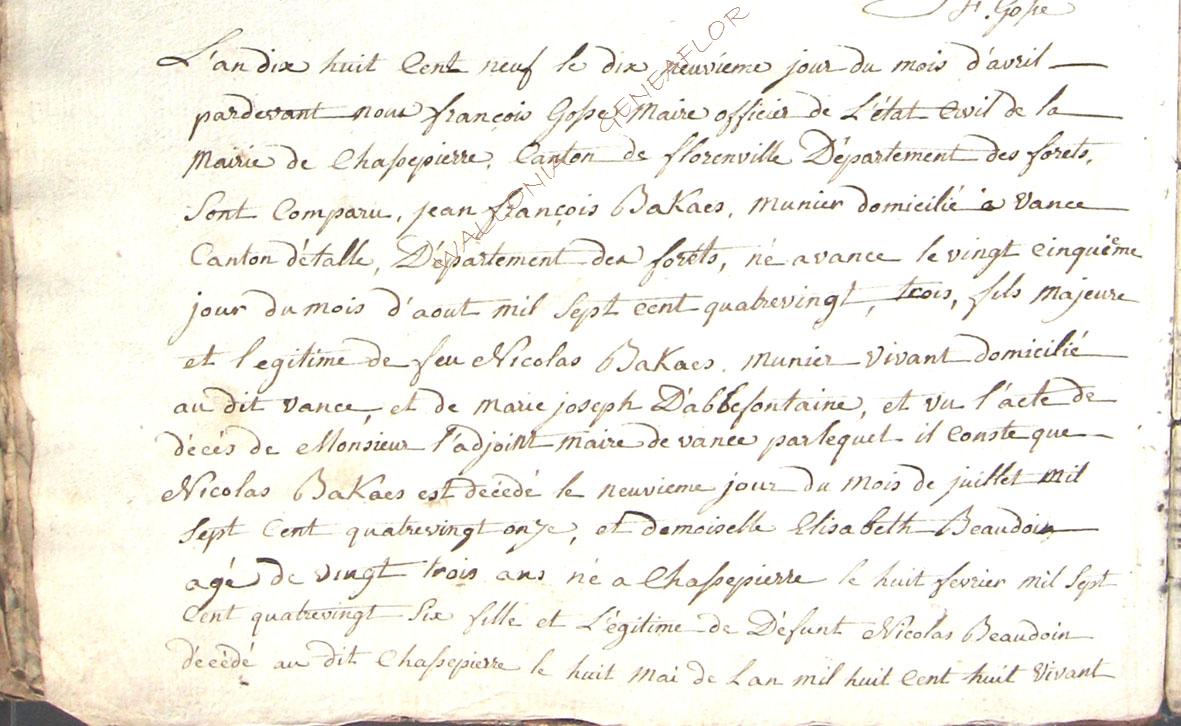 f. Gosse
L'an dix huit Cent neuf le dix neuvieme jour du mois d'avril
pardevant nous françois Gosse Maire officier de L'état Civil de la
Mairie de Chassepierre, Canton de florenville Département des forets,
Sont Comparu, jean françois BaKaes, munier domicilié a Vance
Canton d'étalle, Département des forêts, né a vance le vingt cinquième
jour du mois d'aout mil Sept cent quatrevingt, trois, fils Majeure
et legitime de feu Nicolas BaKaes, munier vivant domicilié
au dit vance, et de marie joseph D'abbefontaine, et vu l'acte de
décés de Monsieur l'adjoint maire de vance par lequel il Conste que
Nicolas BaKaes est décédé le neuvieme jour du mois de juillet mil
Sept Cent quatrevingt onze, et demoiselle Elisabeth Beaudoin
agé de vingt trois ans né a Chassepierre le huit fevrier mil Sept
Cent quatrevingt Six fille et Légitime de Défunt Nicolas Beaudoin
décédé au dit Chassepierre le huit Mai de Lan mil huit Cent huit Vivant
WALLONIA GENEAFLOR